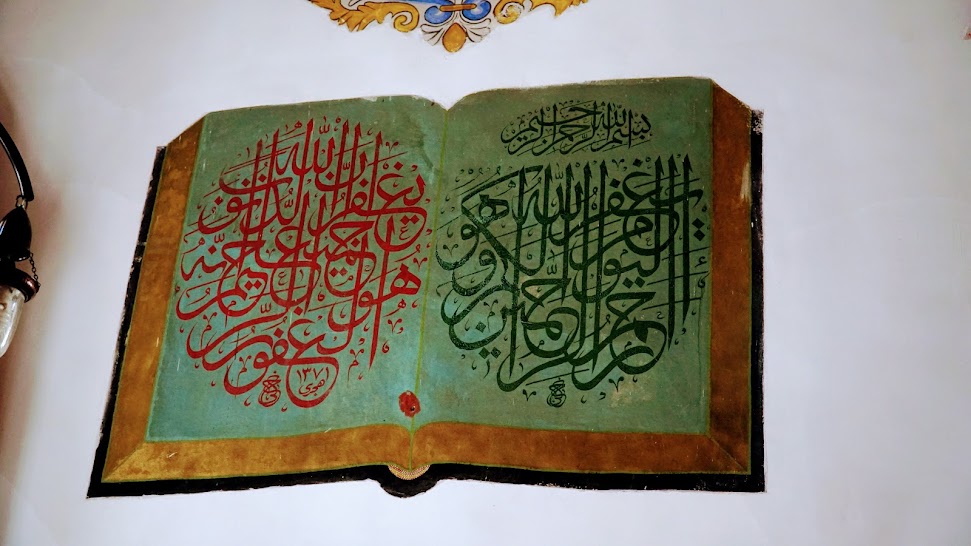 بسم الله الرحمن الرحيم
اليوم يغفر الله لكم وهو أرحم الراحمين
إن الله يغفر الذنوب جميعا إنه هو الغفور الرحيم
١٣٧١ هجري